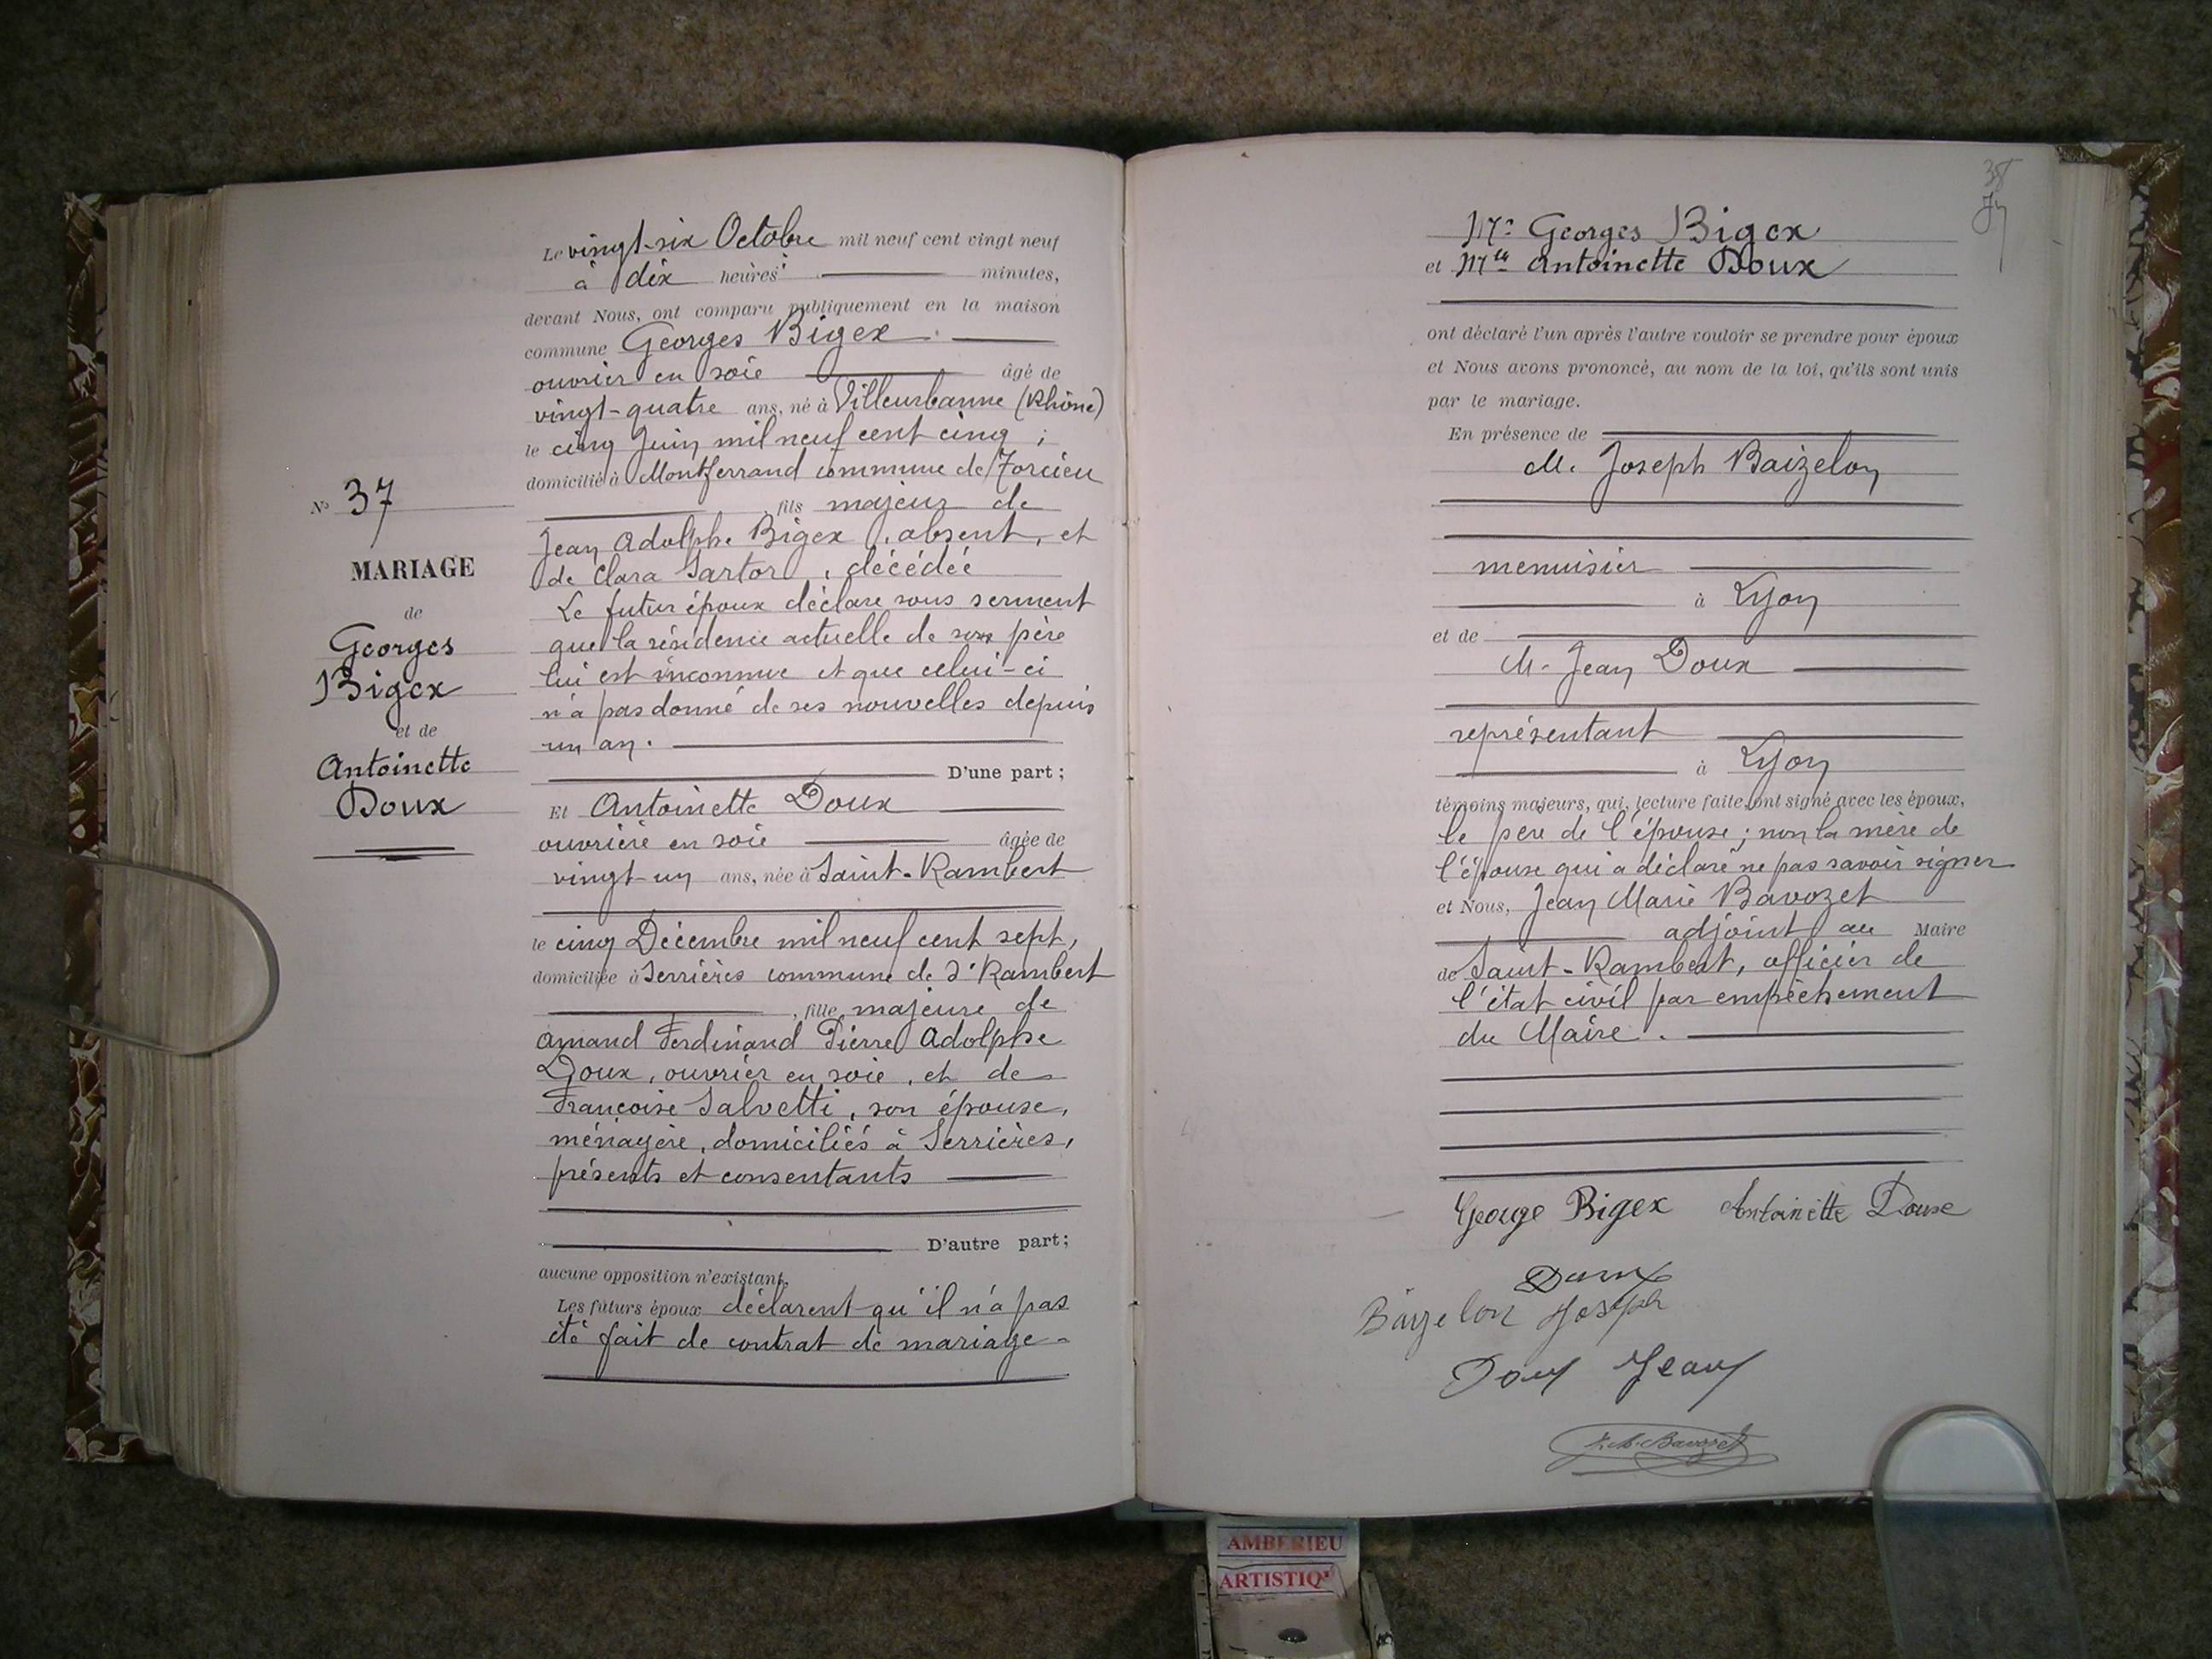 Le vingt-six Octobre mil neuf cent vingt neuf
à dix heures minutes,
devant Nous, ont comparu publiquement en la maison
commune Georges Bigex
ouvrier en soie âgé de
vingt-quatre ans, né à Villeurbanne (Rhône)
le cinq Juin mil neuf cent cinq ;
domicilié à Montferrand commune de Torcieu
fils majeur de
Jean Adolphe Bigex, absent, et
de Clara Sartor, décédée
Le futur époux déclare sous serment
que la résidence actuelle de son père
lui est inconnue et que celui-ci
n'a pas donné de ses nouvelles depuis
un an.
D'une part ;
Et Antoinette Doux
ouvrière en soie âgée de
vingt-un ans, née à Saint-Rambert
le cinq Décembre mil neuf cent sept,
domiciliée à Serrières commune de St Rambert
, fille majeure de
Amand Ferdinand Pierre Adolphe
Doux, ouvrier en soie, et de
Françoise Salvetti, son épouse,
ménagère, domiciliés à Serrières,
présents et consentants
D'autre part ;
aucune opposition n'existant,
Les futurs époux déclarent qu'il n'a pas
été fait de contrat de mariage -
No 37
MARIAGE
de
Georges
Bigex
et de
Antoinette
Doux
38
Mr Georges Bigex
et Mlle Antoinette Doux
ont déclaré l'un après l'autre vouloir se prendre pour époux
et Nous avons prononcé, au nom de la loi, qu'ils sont unis
par le mariage.
En présence de
M. Joseph Baizelon
menuisier
à Lyon
et de
M. Jean Doux
représentant
à Lyon
témoins majeurs, qui, lecture faite, ont signé avec les époux,
le père de l'épouse ; non la mère de
l'épouse qui a déclaré ne pas savoir signer
et Nous, Jean Marie Bavozet
adjoint au Maire
de Saint-Rambert, officier de
l'état civil par empêchement
du Maire.
George Bigex Antoinette Doux
Doux
Baizelon Joseph
Doux Jean
J. M. Bavozet
AMBERIEU
ARTISTIQ